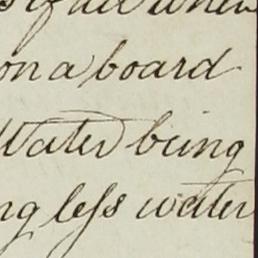 of all when
on a board
Water being
ng leſs water